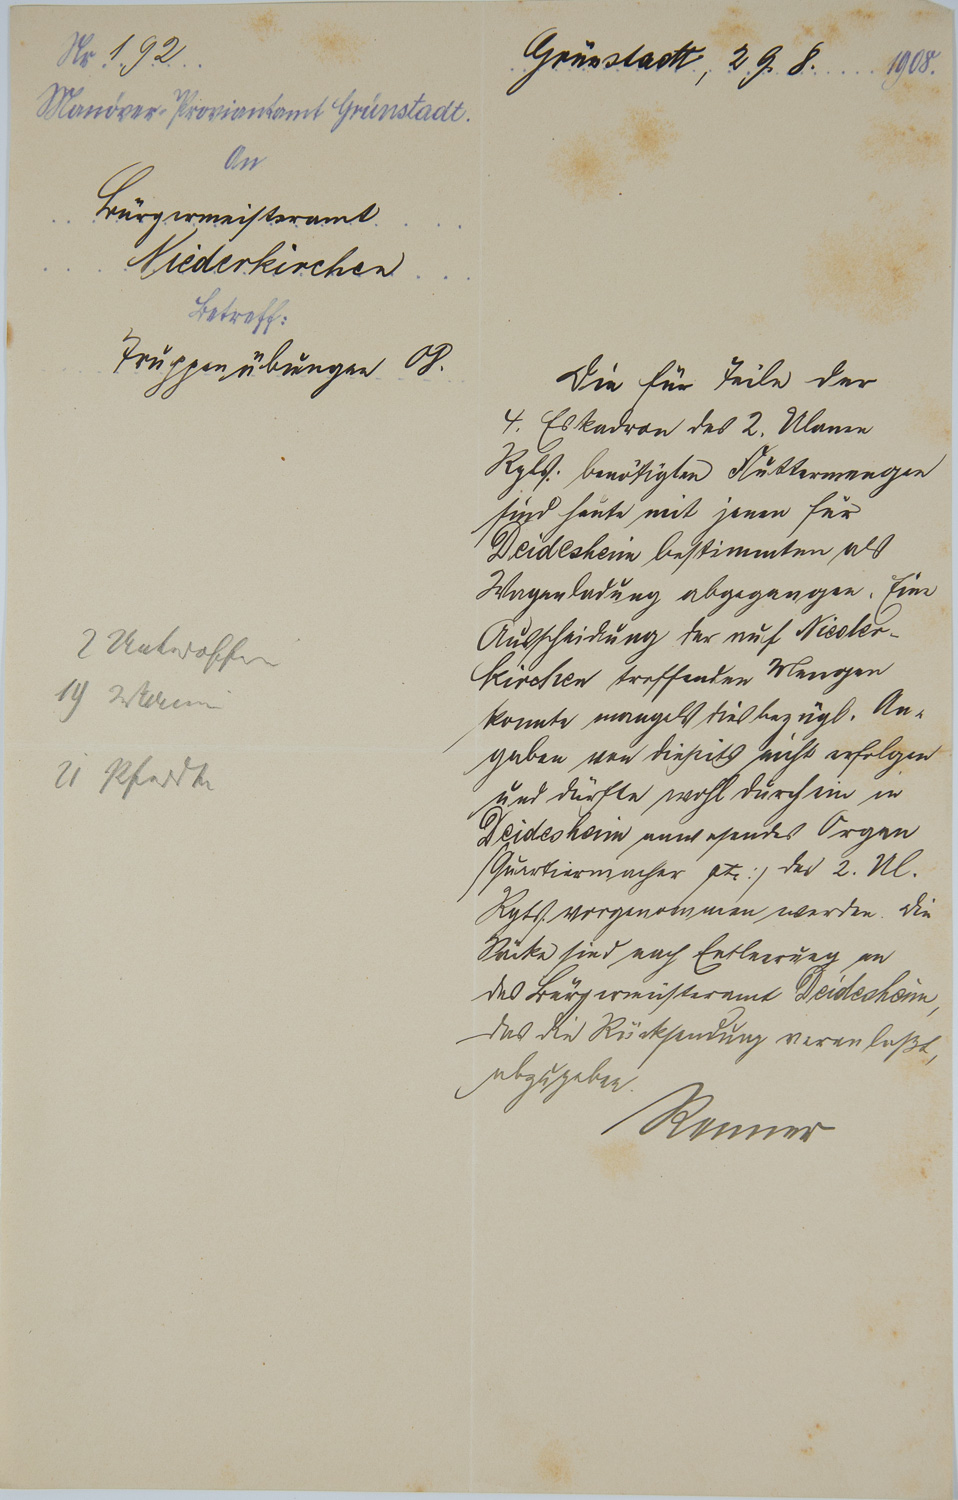 Nr 192
Manöver-Proviantamt Grünstadt.
An
Bürgermeisteramt
Niederkirchen
Betreff:
Truppenübungen 08.
Grünstadt, 29. 8. 1908.
Die für Teile der
4. Eskadron des 2. Ulanen
Rgts. benötigten Futtermengen
sind heute mit jenen für
Deidesheim bestimmten als
Wagenladung abgegangen. Eine
Ausscheidung der auf Nieder-
kirchen treffenden Mengen
konnte mangels diesbezügl. An-
gaben von dieseits nicht erfolgen
und dürfte wohl durch ein in
Deidesheim anwesendes Organ
(Quartiermacher etc:) des 2. Ul.
Rgts. vorgenommen werden. Die
Säcke sind nach Entleerung an
das Bürgermeisteramt Deidesheim,
das die Rücksendung veranlaßt,
abzugeben.
Renner
2 Unteroffen
19 Mann
21 Pferde